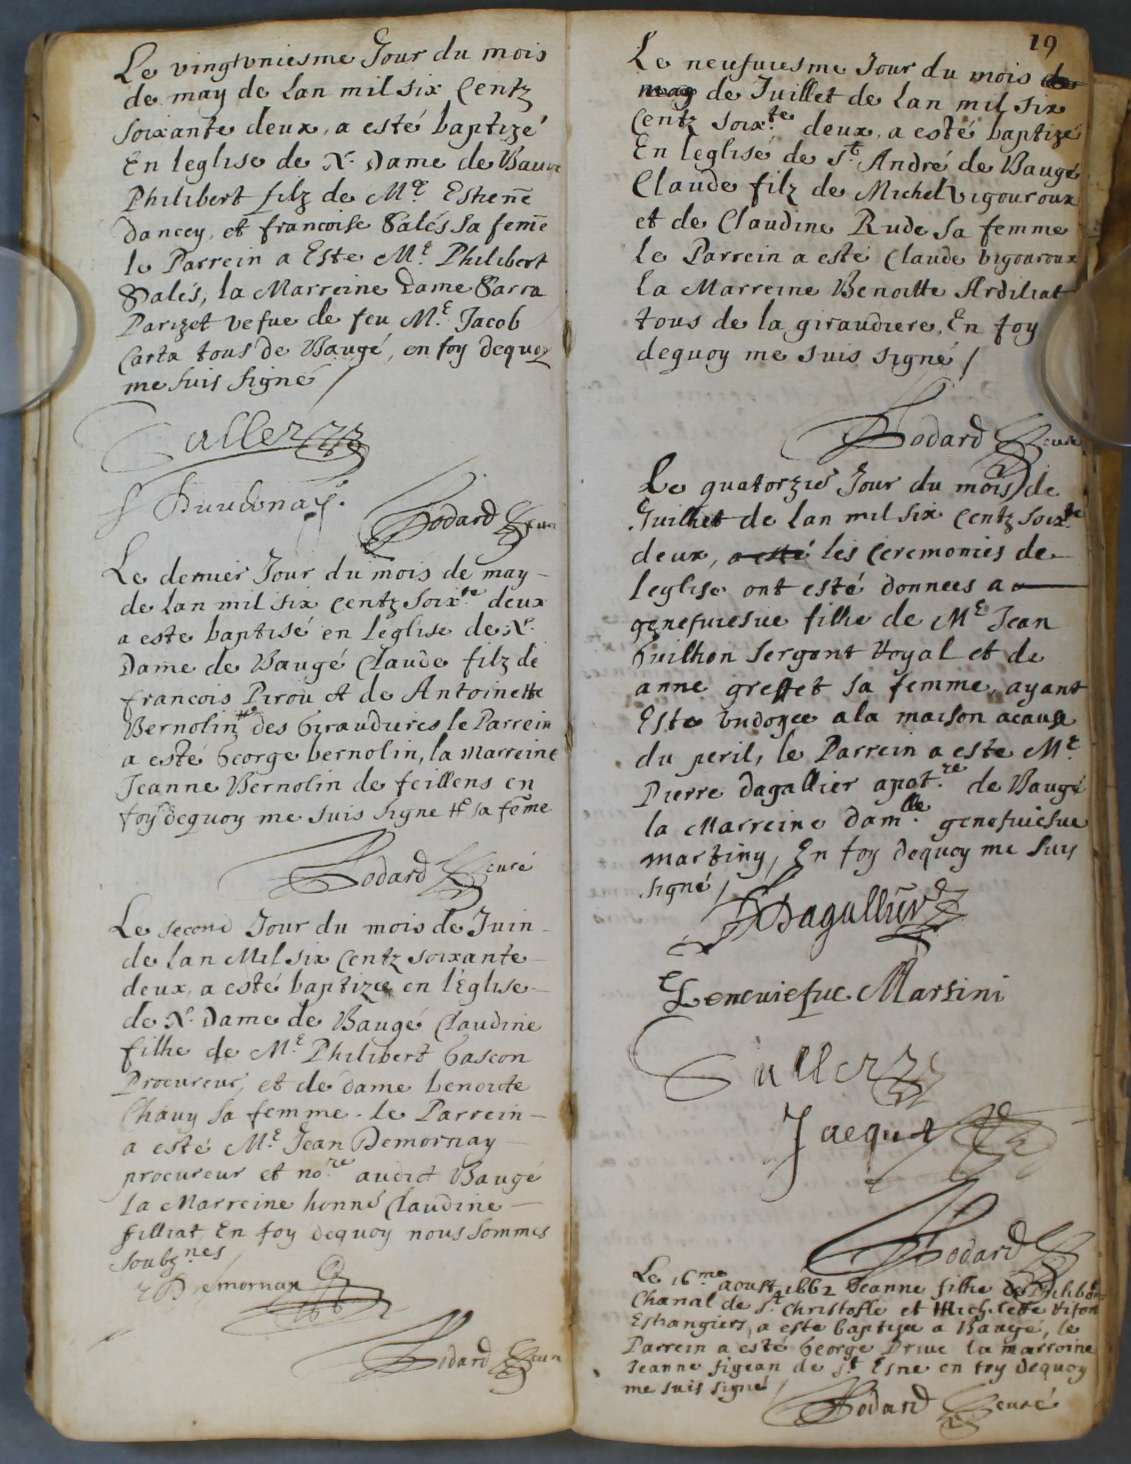 Le vingtvniesme Jour du mois
de may de Lan mil six Centz
soixante deux, a esté baptizé
En leglise de N. Dame de Baugé
Philibert filz de Me. Estienne
Dancey, et francoise Salés sa femme
le Parrein a Este Me. Philibert
Salés, la Marreine Dame Sarra
Parizet vefue de feu Me. Jacob
Carta tous de Baugé, en foy dequoy
me suis signé /
Bodard Cure
Le dernier Jour du mois de may
de Lan mil six centz soixte. deux
a este baptisé en leglise de N.
Dame de Baugé Claude filz de
francois Pirou et de Antoinette
Bernolin des Giraudieres le Parrein
a esté George bernolin, la Marreine
Jeanne Bernolin de feillens en
foy dequoy me suis signe # sa feme
Bodard Curé
Le second Jour du mois de Juin
de lan Mil six Centz soixante
deux, a esté baptizee en l'Eglise
de N. Dame de Baugé Claudine
filhe de Me. Philibert Gascon
Procureur, et de dame benoite
Chauy sa femme. le Parrein
a esté Me. Jean Demornay
procureur et nore. audict Baugé
la Marreine honne Claudine
filliat En foy dequoy nous sommes
soubznes
Demornay
Bodard Cure
19
Le neufuiesme Jour du mois de
may de Juillet de Lan mil six
Centz soixte. deux, a esté baptizé
En leglise de St. André de Baugé
Claude filz de Michel Vigouroux
et de Claudine Rude sa femme
le Parrein a esté Claude Vigouroux
La Marreine Benoitte Ardiliat
tous de la giraudiere, En foy
dequoy me suis signé /
Bodard Cure
Le quatorzie Jour du mois de
Juilhet de Lan mil six Centz soixte
deux, a esté les Ceremonies de
leglise ont esté données a
genefuiesue filhe de Me Jean
Guilhon Sergent Royal et de
anne greffet sa femme, ayant
Este Undoyee a la maison a cause
du peril, le Parrein a este Me.
Pierre Dagallier apotre. de Baugé
la Marreine damlle genefuiesue
Martiny, En foy dequoy me suis
signé /
Dagallier
Geneuiefue Martini
Jacquet
Bodard
Le 16me aoust 1662 Jeanne filhe de Philibert
Chanal de St. Christofle et Michelette
Estrangiers, a este baptizee a Baugé, le
Parrein a esté George Priue la marreine
Jeanne figean de St Esne en foy dequoy
me suis signé /
Bodard Curé